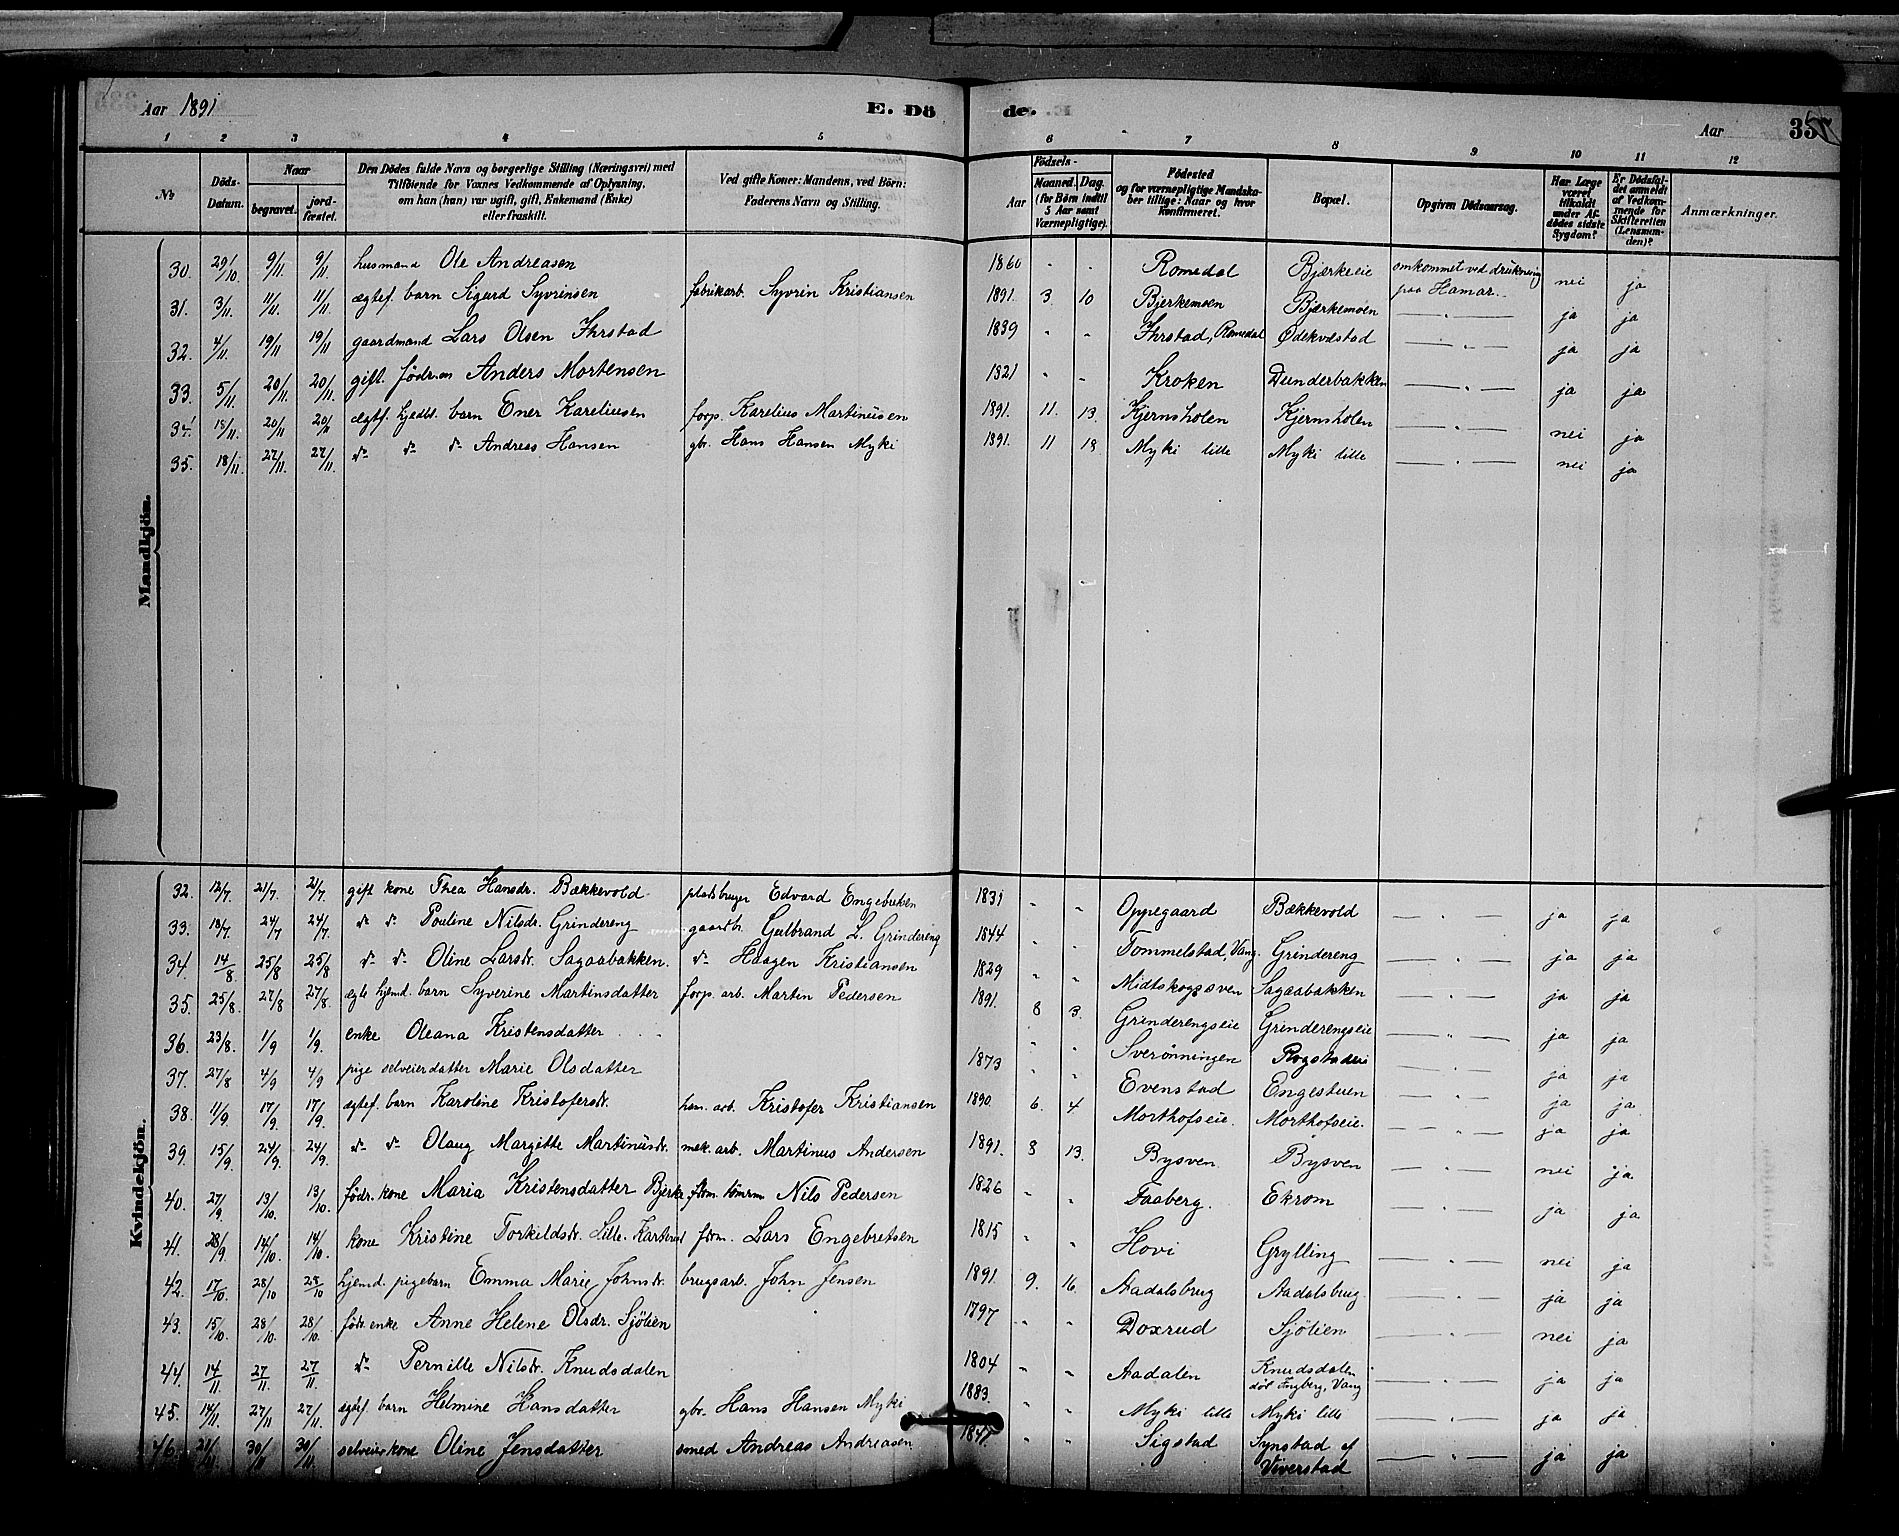 Aar 1891 E. Dö de. Aar 35
1 2 3 4 5 6 7 8 9 10 11 12
№ Döds-Datum. Naar begravet. jord-fæstet. Den Dödes fulde Navn og borgerlige Stilling (Næringsvei) med Tilföiende for Voxnes Vedkommende af Oplysning, om hun (han) var ugift, gift, Enkemand (Enke) eller fraskilt. Ved gifte Koner: Mandens, ved Börn: Faderens Navn og Stilling. Födsels- Aar Maaned. Dag. (for Börn indtil 5 Aar samt Værnepligtige). Födested og for værnepligtige Mandskaber tillige: Naar og hvor konfirmeret. Bopæl. Opgiven Dödsaarsag. Har Læge været tilkaldt under Afdödes sidste Sygdom? Er Dödsfaldet anmeldt af Vedkommende for Skifteretten (Lensmanden)? Anmærkninger.
Mandkjön.
30. 29/10 9/11. 9/11. husmand Ole Andreasen 1860 " " Romedal Bjærkeeie omkommet ved drukning paa Hamar. nei ja
31. 3/11. 11/11. 11/11. ægtef. barn Sigurd Syvrinsen fabrikarb. Syvrin Kristiansen 1891. 3. 10 Bjerkemoen Bjærkemoen — " — ja ja
32. 4/11. 19/11 19/11 gaardmand Lars Olsen Ihrstad 1839 " " Ihrstad, Romedal Ödekvæstad — " — ja ja
33. 5/11. 20/11 20/11 gift. födr.m Anders Mortensen 1821 " " Kroken Dunderbakken — " — ja ja
34. 18/11. 20/11 20/11 ægtf. hjedbt. barn Ener Kareliusen forp. Karelius Martinusen 1891. 11. 13. Kjernsholen Kjernsholen — " — nei ja
35. 18/11. 27/11. 27/11. do do do Andreas Hansen gbr. Hans Hansen Myki 1891. 11 18 Myki lille Myki lille — " — nei ja
Kvindekjön.
32. 12/7 21/7 21/7. gift kone Thea Hansdr. Bækkevold pladsbruger Edvard Engebretsen 1831 " " Oppegaard Bækkevold — " — ja ja
33. 18/7 24/7 24/7. do do Pouline Nilsdr. Grindereng gaardbr. Gulbrand L. Grindereng 1844 " " Tommelstad, Vang Grindereng — " — ja ja
34 14/8 25/8 25/8 do do Oline Larsdr. Sagaabakken. do Haagen Kristiansen 1829 " " Midtskogsven Sagaabakken — " — ja ja
35. 25/8 27/8 27/8 ægte hjemd. barn Syverine Martinsdatter forp. arb. Martin Pedersen 1891. 8 3. Grinderengseie Grinderengseie — " — ja ja
36. 23/8. 1/9 1/9. enke Oleana Kristensdatter " " Sverönningen Rogstadeie — " — ja ja
37. 27/8 4/9 4/9 pige selveierdatter Marie Olsdatter 1873 " " Evenstad Engestuen — " — ja ja
38. 11/9 17/9. 17/9. ægtef. barn Karoline Kristofersdr. hm. arb. Kristofer Kristiansen 1890. 6. 4 Morthofseie. Morthofseie. — " — ja ja
39. 15/9. 24/9. 24/9. do do Olaug Margitte Martinusdr. mek. arb. Martinus Andersen 1891. 8 13. Bysven. Bysven — " — nei ja.
40. 27/9 13/10. 13/10. födr. kone Maria Kristensdatter Bjerke fdm. tömrm Nils Pedersen 1826 " " Faaberg. Ekrom — " — ja ja
41. 28/9 14/10. 14/10. kone Kristine Torkildsdr. Lille. fdm. Lars Engebretsen 1815 " " Hovi Grylling — " — nei ja
42. 17/10 28/10 28/10 hjemd. pigebarn Emma Marie Johnsdr. brugsarb. John Jensen 1891. 9. 16. Aadalsbrug Aadalsbrug — " — ja ja
43. 15/10. 28/10. 28/10. födr. enke Anne Helene Olsdr. Sjölien 1797 " " Doxrud Sjölien — " — nei ja
44. 14/11. 27/11. 27/11. do Pernille Nilsdr. Knudsdalen 1804 " " Aadalen Knudsdalen död Ingberg, Vang — " — ja ja
45. 14/11. 27/11 27/11. ægtef. barn Helmine Hansdatter gbr. Hans Hansen Myki 1883. " " Myki lille Myki lille — " — ja ja
46. 30/11 30/11. selveierkone Oline Jensdatter smed Andreas Andreasen " " Sigstad Synstad af Viverstad — " — ja ja